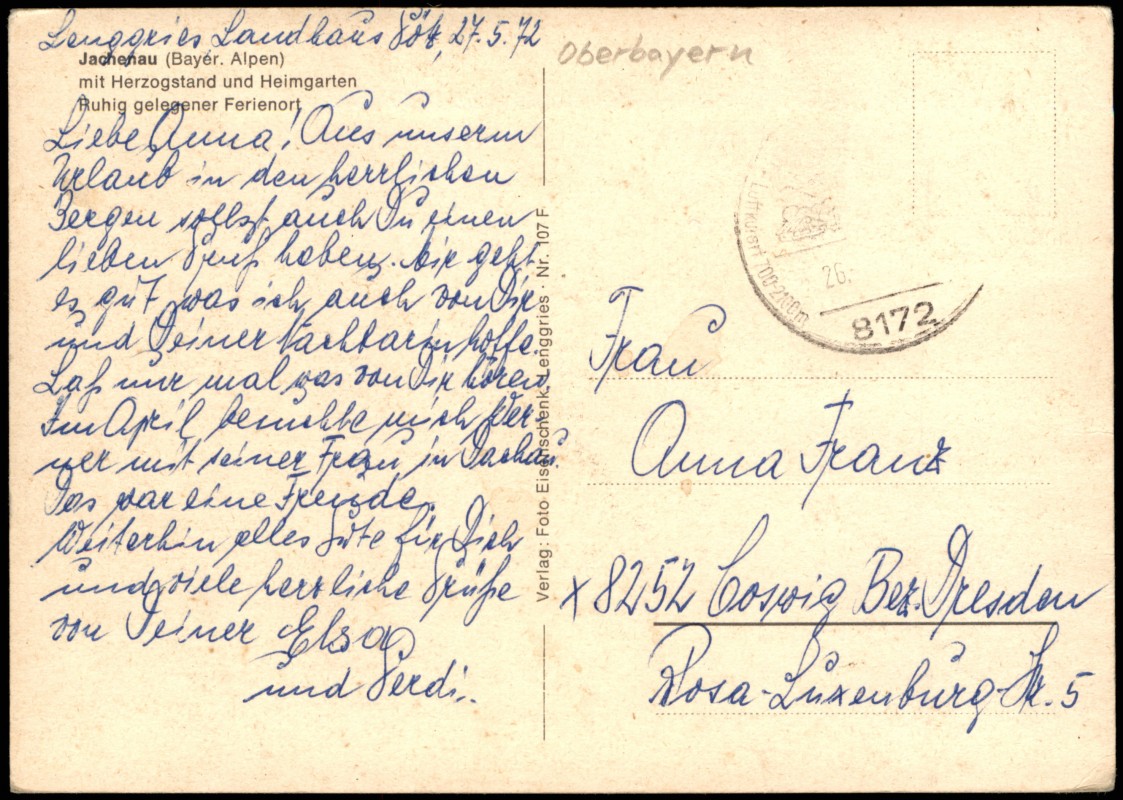 Lenggries Landhaus Götz, 27.5.72
Jachenau (Bayer. Alpen)
mit Herzogstand und Heimgarten
Ruhig gelegener Ferienort
Liebe Anna! Aus unserm
Urlaub in den herrlichen
Bergen sollst auch Du einen
lieben Gruß haben. Mir geht
es gut, was ich auch von Dir
und Deiner Nachbarin hoffe.
Laß nur mal was von Dir hören
Im April besuchte mich Wer-
ner mit seiner Frau in Dachau.
Das war eine Freude.
Weiterhin alles Gute für Dich
und viele herzliche Grüße
von Deiner Elsa
und Ferdi.
Verlag: Foto Eisenschenk, Lenggries · Nr. 107 F
Oberbayern
Luftkurort 700-2100m
26.
8172
Frau
Anna Franz
x 8252 Coswig Bez. Dresden
Rosa-Luxenburg-Str. 5